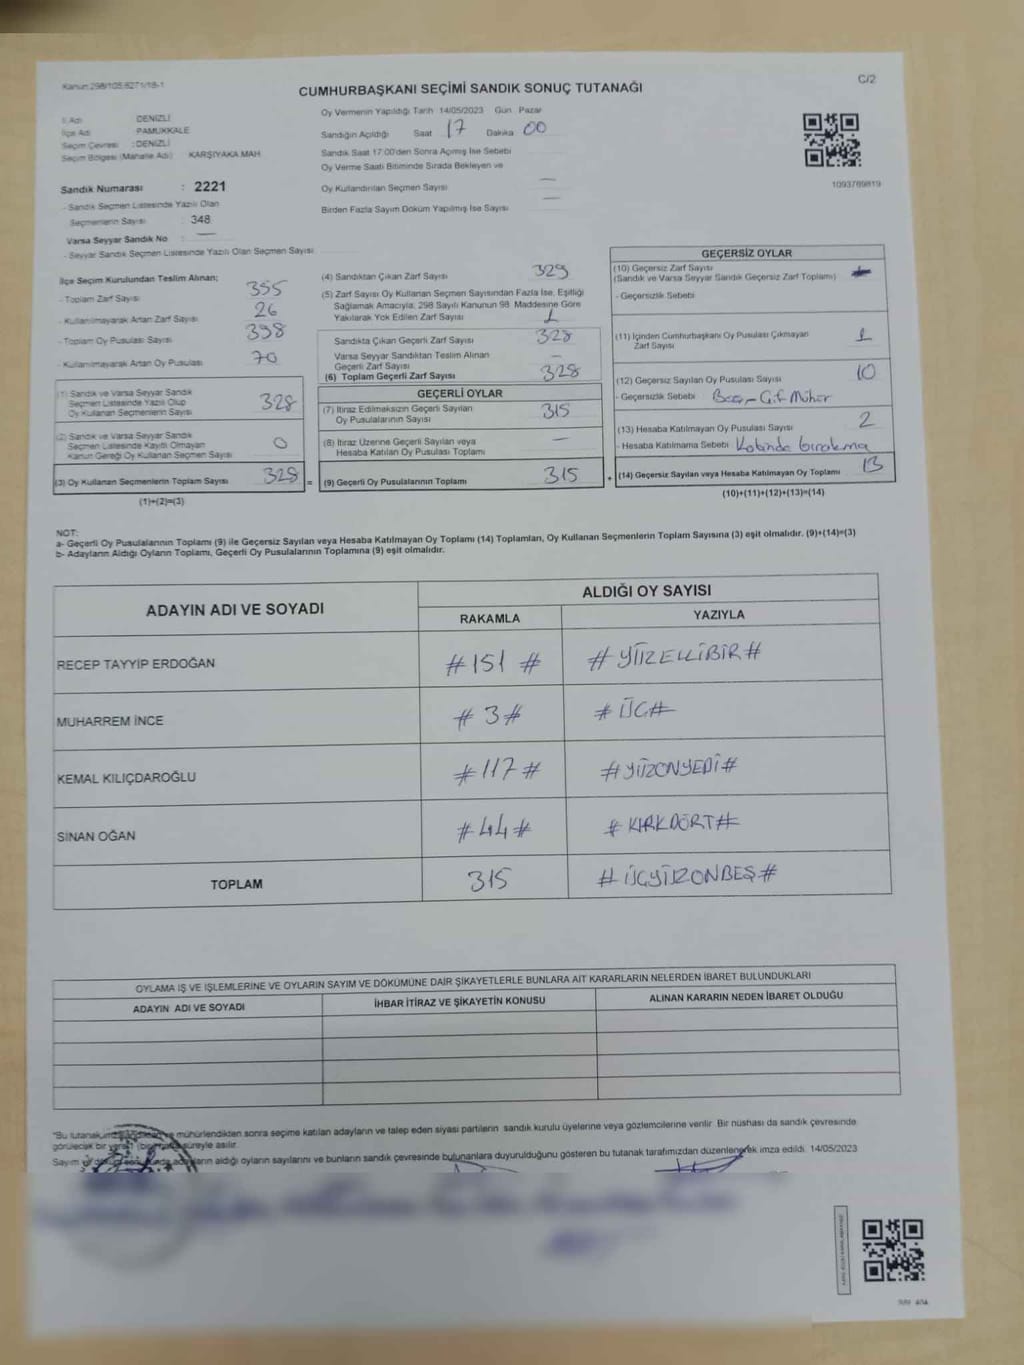 Kanun:298/105,6271/18-1
C/2
CUMHURBAŞKANI SEÇİMİ SANDIK SONUÇ TUTANAĞI
İl Adı DENİZLİ
İlçe Adı PAMUKKALE
Seçim Çevresi : DENİZLİ
Seçim Bölgesi (Mahalle Adı) KARŞIYAKA MAH
Sandık Numarası : 2221
- Sandık Seçmen Listesinde Yazılı Olan
Seçmenlerin Sayısı : 348
Varsa Seyyar Sandık No : —
- Seyyar Sandık Seçmen Listesinde Yazılı Olan Seçmen Sayısı
Oy Vermenin Yapıldığı Tarih 14/05/2023 Gün Pazar
Sandığın Açıldığı Saat 17 Dakika 00
Sandık Saat 17:00'den Sonra Açılmış İse Sebebi
Oy Verme Saati Bitiminde Sırada Bekleyen ve
Oy Kullandırılan Seçmen Sayısı —
Birden Fazla Sayım Döküm Yapılmış İse Sayısı —
1093769819
İlçe Seçim Kurulundan Teslim Alınan;
- Toplam Zarf Sayısı 355
- Kullanılmayarak Artan Zarf Sayısı 26
- Toplam Oy Pusulası Sayısı 398
- Kullanılmayarak Artan Oy Pusulası 70
(1) Sandık ve Varsa Seyyar Sandık
Seçmen Listesinde Yazılı Olup
Oy Kullanan Seçmenlerin Sayısı 328
(2) Sandık ve Varsa Seyyar Sandık
Seçmen Listesinde Kayıtlı Olmayan
Kanun Gereği Oy Kullanan Seçmen Sayısı 0
(3) Oy Kullanan Seçmenlerin Toplam Sayısı 328 =
(1)+(2)=(3)
(4) Sandıktan Çıkan Zarf Sayısı 329
(5) Zarf Sayısı Oy Kullanan Seçmen Sayısından Fazla İse, Eşitliği
Sağlamak Amacıyla; 298 Sayılı Kanunun 98. Maddesine Göre
Yakılarak Yok Edilen Zarf Sayısı 1
Sandıkta Çıkan Geçerli Zarf Sayısı 328
Varsa Seyyar Sandıktan Teslim Alınan
Geçerli Zarf Sayısı —
(6) Toplam Geçerli Zarf Sayısı 328
GEÇERLİ OYLAR
(7) İtiraz Edilmeksizin Geçerli Sayılan
Oy Pusulalarının Sayısı 315
(8) İtiraz Üzerine Geçerli Sayılan veya
Hesaba Katılan Oy Pusulası Toplamı —
(9) Geçerli Oy Pusulalarının Toplamı 315 +
GEÇERSİZ OYLAR
(10) Geçersiz Zarf Sayısı
(Sandık ve Varsa Seyyar Sandık Geçersiz Zarf Toplamı)
- Geçersizlik Sebebi
(11) İçinden Cumhurbaşkanı Oy Pusulası Çıkmayan
Zarf Sayısı 1
(12) Geçersiz Sayılan Oy Pusulası Sayısı 10
- Geçersizlik Sebebi Mühür
(13) Hesaba Katılmayan Oy Pusulası Sayısı 2
- Hesaba Katılmama Sebebi Kabinde bırakma
(14) Geçersiz Sayılan veya Hesaba Katılmayan Oy Toplamı 13
(10)+(11)+(12)+(13)=(14)
NOT:
a- Geçerli Oy Pusulalarının Toplamı (9) ile Geçersiz Sayılan veya Hesaba Katılmayan Oy Toplamı (14) Toplamları, Oy Kullanan Seçmenlerin Toplam Sayısına (3) eşit olmalıdır. (9)+(14)=(3)
b- Adayların Aldığı Oyların Toplamı, Geçerli Oy Pusulalarının Toplamına (9) eşit olmalıdır.
ADAYIN ADI VE SOYADI
ALDIĞI OY SAYISI
RAKAMLA YAZIYLA
RECEP TAYYİP ERDOĞAN #151# #YÜZELLİBİR#
MUHARREM İNCE #3# #ÜÇ#
KEMAL KILIÇDAROĞLU #117# #YÜZONYEDİ#
SİNAN OĞAN #44# #KIRKDÖRT#
TOPLAM 315 #ÜÇYÜZONBEŞ#
OYLAMA İŞ VE İŞLEMLERİNE VE OYLARIN SAYIM VE DÖKÜMÜNE DAİR ŞİKAYETLERLE BUNLARA AİT KARARLARIN NELERDEN İBARET BULUNDUKLARI
ADAYIN ADI VE SOYADI İHBAR İTİRAZ VE ŞİKAYETİN KONUSU ALINAN KARARIN NEDEN İBARET OLDUĞU
*Bu tutanak mühürlendikten sonra seçime katılan adayların ve talep eden siyasi partilerin sandık kurulu üyelerine veya gözlemcilerine verilir. Bir nüshası da sandık çevresinde
görülecek bir yere süreyle asılır.
Sayım adayların aldığı oyların sayılarını ve bunların sandık çevresinde bulunanlara duyurulduğunu gösteren bu tutanak tarafımızdan düzenlenerek imza edildi. 14/05/2023